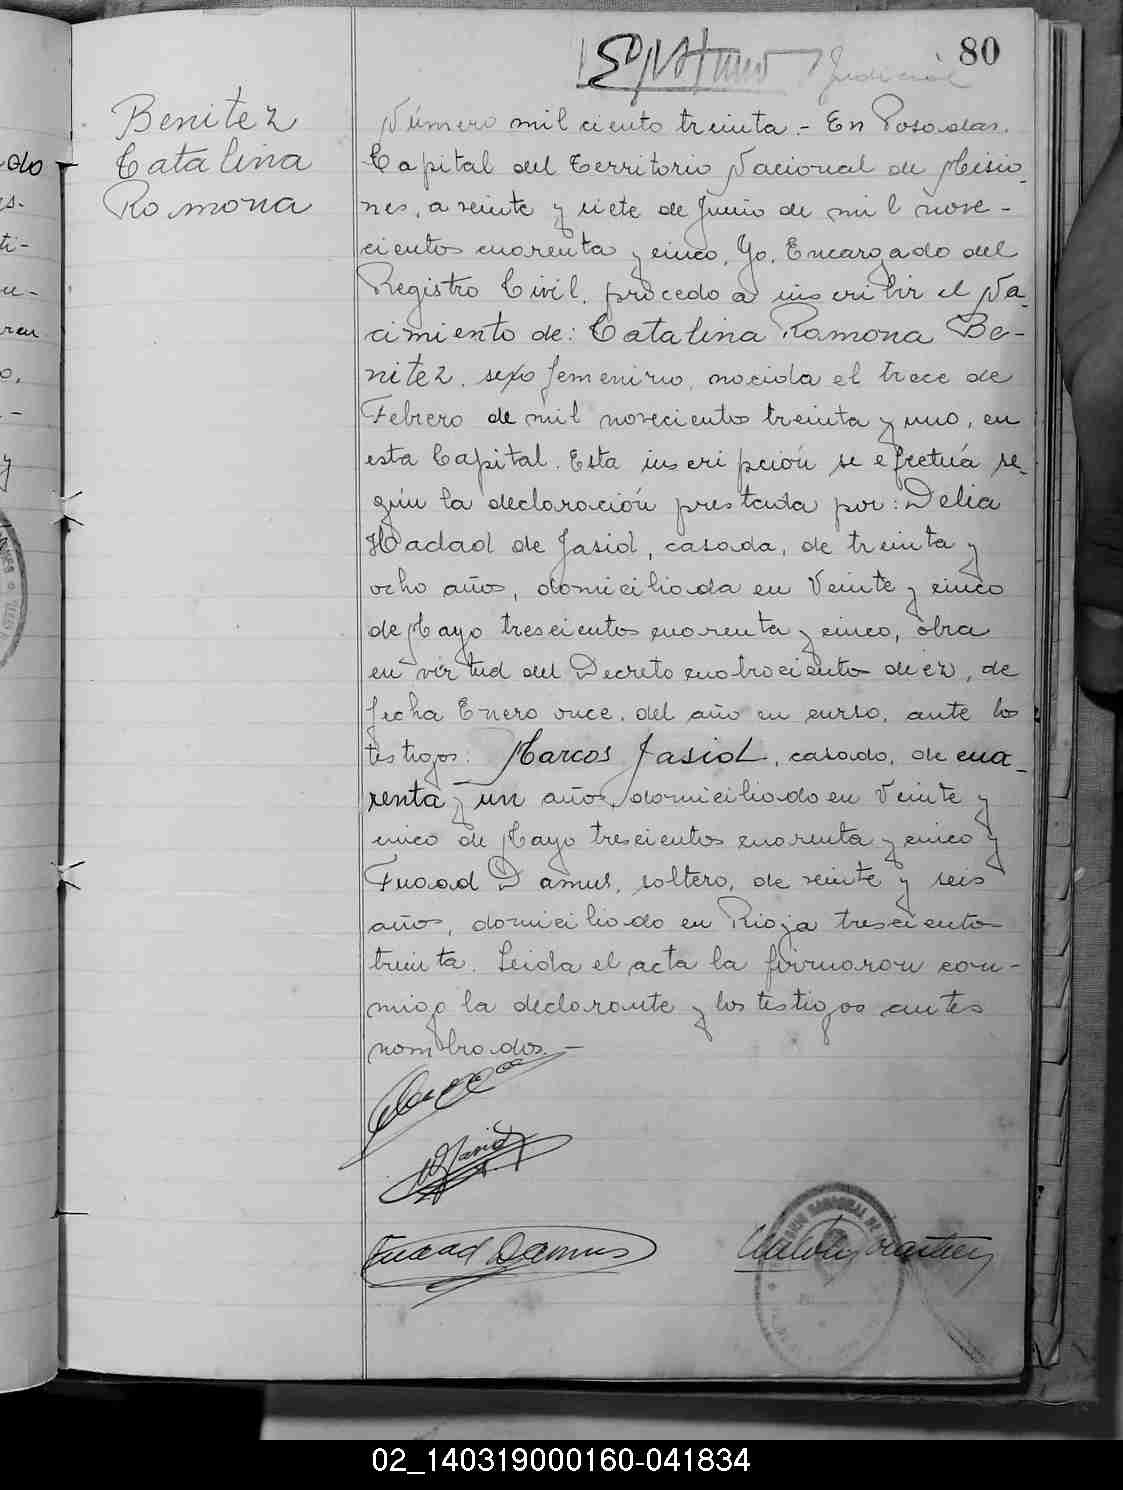 80
Judicial
Benitez
Catalina
Ramona
Número mil ciento treinta.- En Posadas.
Capital del Territorio Nacional de Misio-
nes, a veinte y siete de Junio de mil nove-
cientos cuarenta y cinco, Yo, Encargado del
Registro Civil, procedo a inscribir el Na-
cimiento de: Catalina Ramona Be-
nitez, sexo femenino, nacida el trece de
Febrero de mil novecientos treinta y uno, en
esta Capital. Esta inscripción se efectúa se-
gún la declaración prestada por: Delia
Hadad de Jasid, casada, de treinta y
ocho años, domiciliada en Veinte y cinco
de Mayo trescientos cuarenta y cinco, obra
en virtud del Decreto cuatrociento diez, de
fecha Enero once, del año en curso, ante los
testigos: Marcos Jasid, casado, de cua-
renta y un años, domiciliado en Veinte y
cinco de Mayo trescientos cuarenta y cinco y
Fuaad Damus, soltero, de veinte y seis
años, domiciliado en Rioja trescientos
treinta. Leida el acta la firmaron con-
migo la declarante y los testigos antes
nombrados.-
Jasid
Fuaad Damus
do
s-
ti-
u-
ren
o,
-
y
02_140319000160-041834